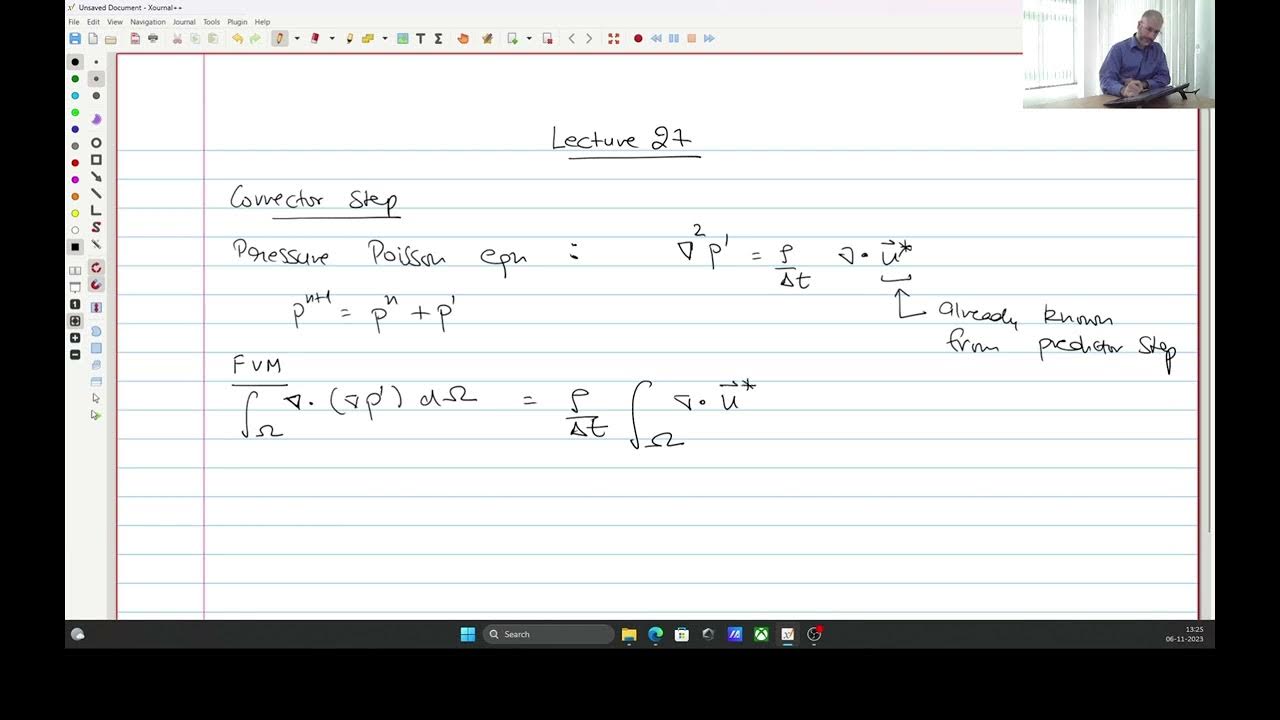 Unsaved Document - Xournal++
File Edit View Navigation Journal Tools Plugin Help
Lecture 27
Corrector Step
Pressure Poisson eqn : ∇²p' = ρ/Δt ∇·u⃗*
pⁿ⁺¹ = pⁿ + p'
already known
from predictor step
FVM
∫_Ω ∇·(∇p') dΩ = ρ/Δt ∫_Ω ∇·u⃗*
Search
13:25
06-11-2023